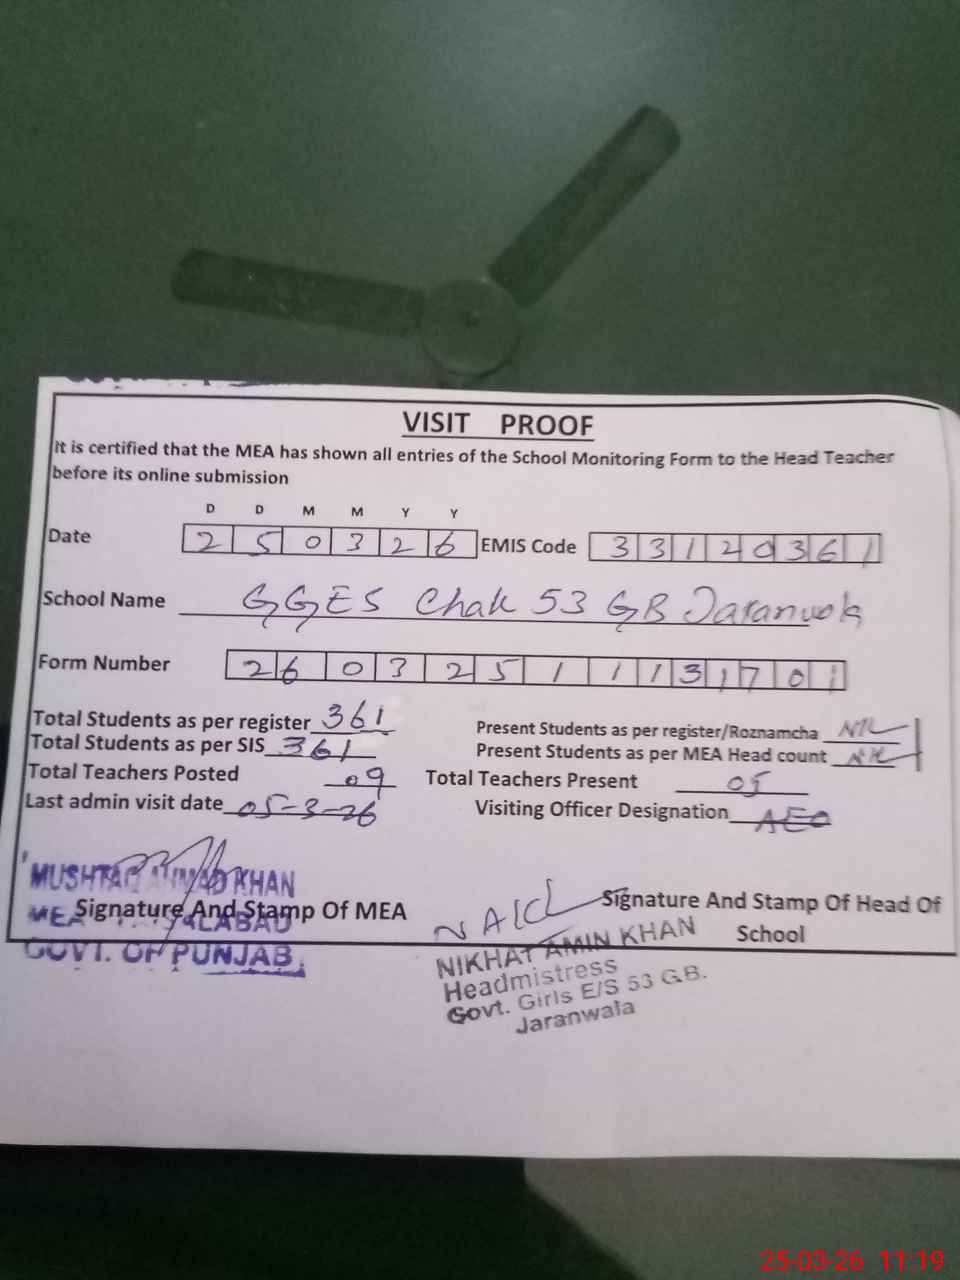 VISIT PROOF
It is certified that the MEA has shown all entries of the School Monitoring Form to the Head Teacher
before its online submission
D D M M Y Y
Date 2 5 0 3 2 6 EMIS Code 3 3 1 2 0 3 6 1
School Name GGES Chak 53 GB Jaranwala
Form Number 2 6 0 3 2 5 1 1 1 3 1 7 0 1
Total Students as per register 361 Present Students as per register/Roznamcha NIL
Total Students as per SIS 361 Present Students as per MEA Head count NIL
Total Teachers Posted 09 Total Teachers Present 05
Last admin visit date 05-3-26 Visiting Officer Designation AEO
MUSHTAQ AHMAD KHAN
MEA
GOVT. OF PUNJAB
Signature And Stamp Of MEA
Signature And Stamp Of Head Of
School
NIKHAT AMIN KHAN
Headmistress
Govt. Girls E/S 53 G.B.
Jaranwala
25-03-26 11:19